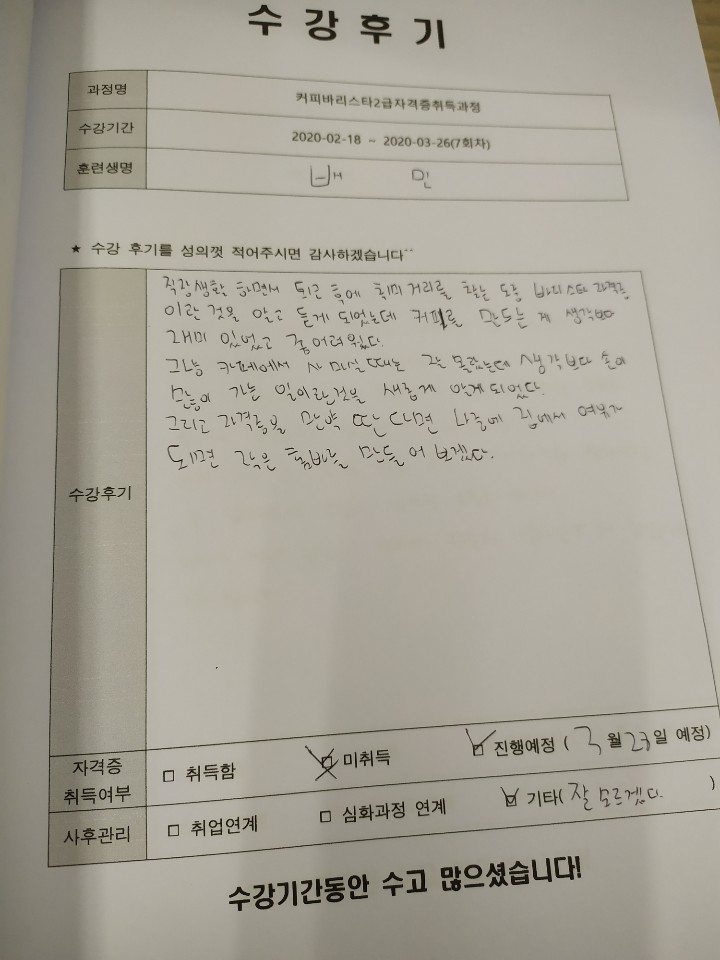 수 강 후 기
과정명 커피바리스타2급자격증취득과정
수강기간 2020-02-18 ~ 2020-03-26(7회차)
훈련생명 배 민
★ 수강 후기를 성의껏 적어주시면 감사하겠습니다^^
수강후기
직장생활 하면서 퇴근 후에 취미거리를 찾는 도중 바리스타 자격증
이란 것을 알고 듣게 되었는데 커피를 만드는 게 생각보다
재미 있었고 좀 어려웠다.
그냥 카페에서 사 마실때는 잘 몰랐는데 생각보다 손이
많이 가는 일이란것을 새롭게 알게되었다.
그리고 자격증을 만약 딴다면 나중에 집에서 여유가
되면 작은 홈바를 만들어 보겠다.
자격증 취득여부 □ 취득함 □ 미취득 □ 진행예정 ( 3월 28일 예정)
사후관리 □ 취업연계 □ 심화과정 연계 □ 기타( 잘 모르겠다. )
수강기간동안 수고 많으셨습니다!